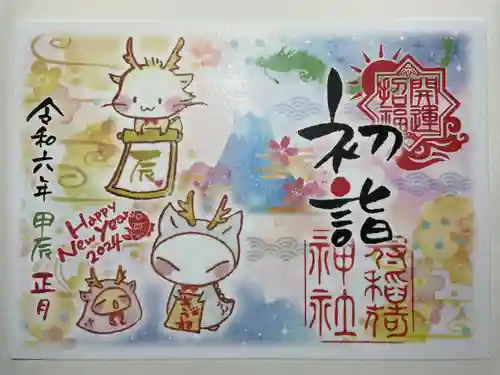 開運
招福
初詣
神社
辰
令和六年 甲辰 正月
Happy
New year
2024